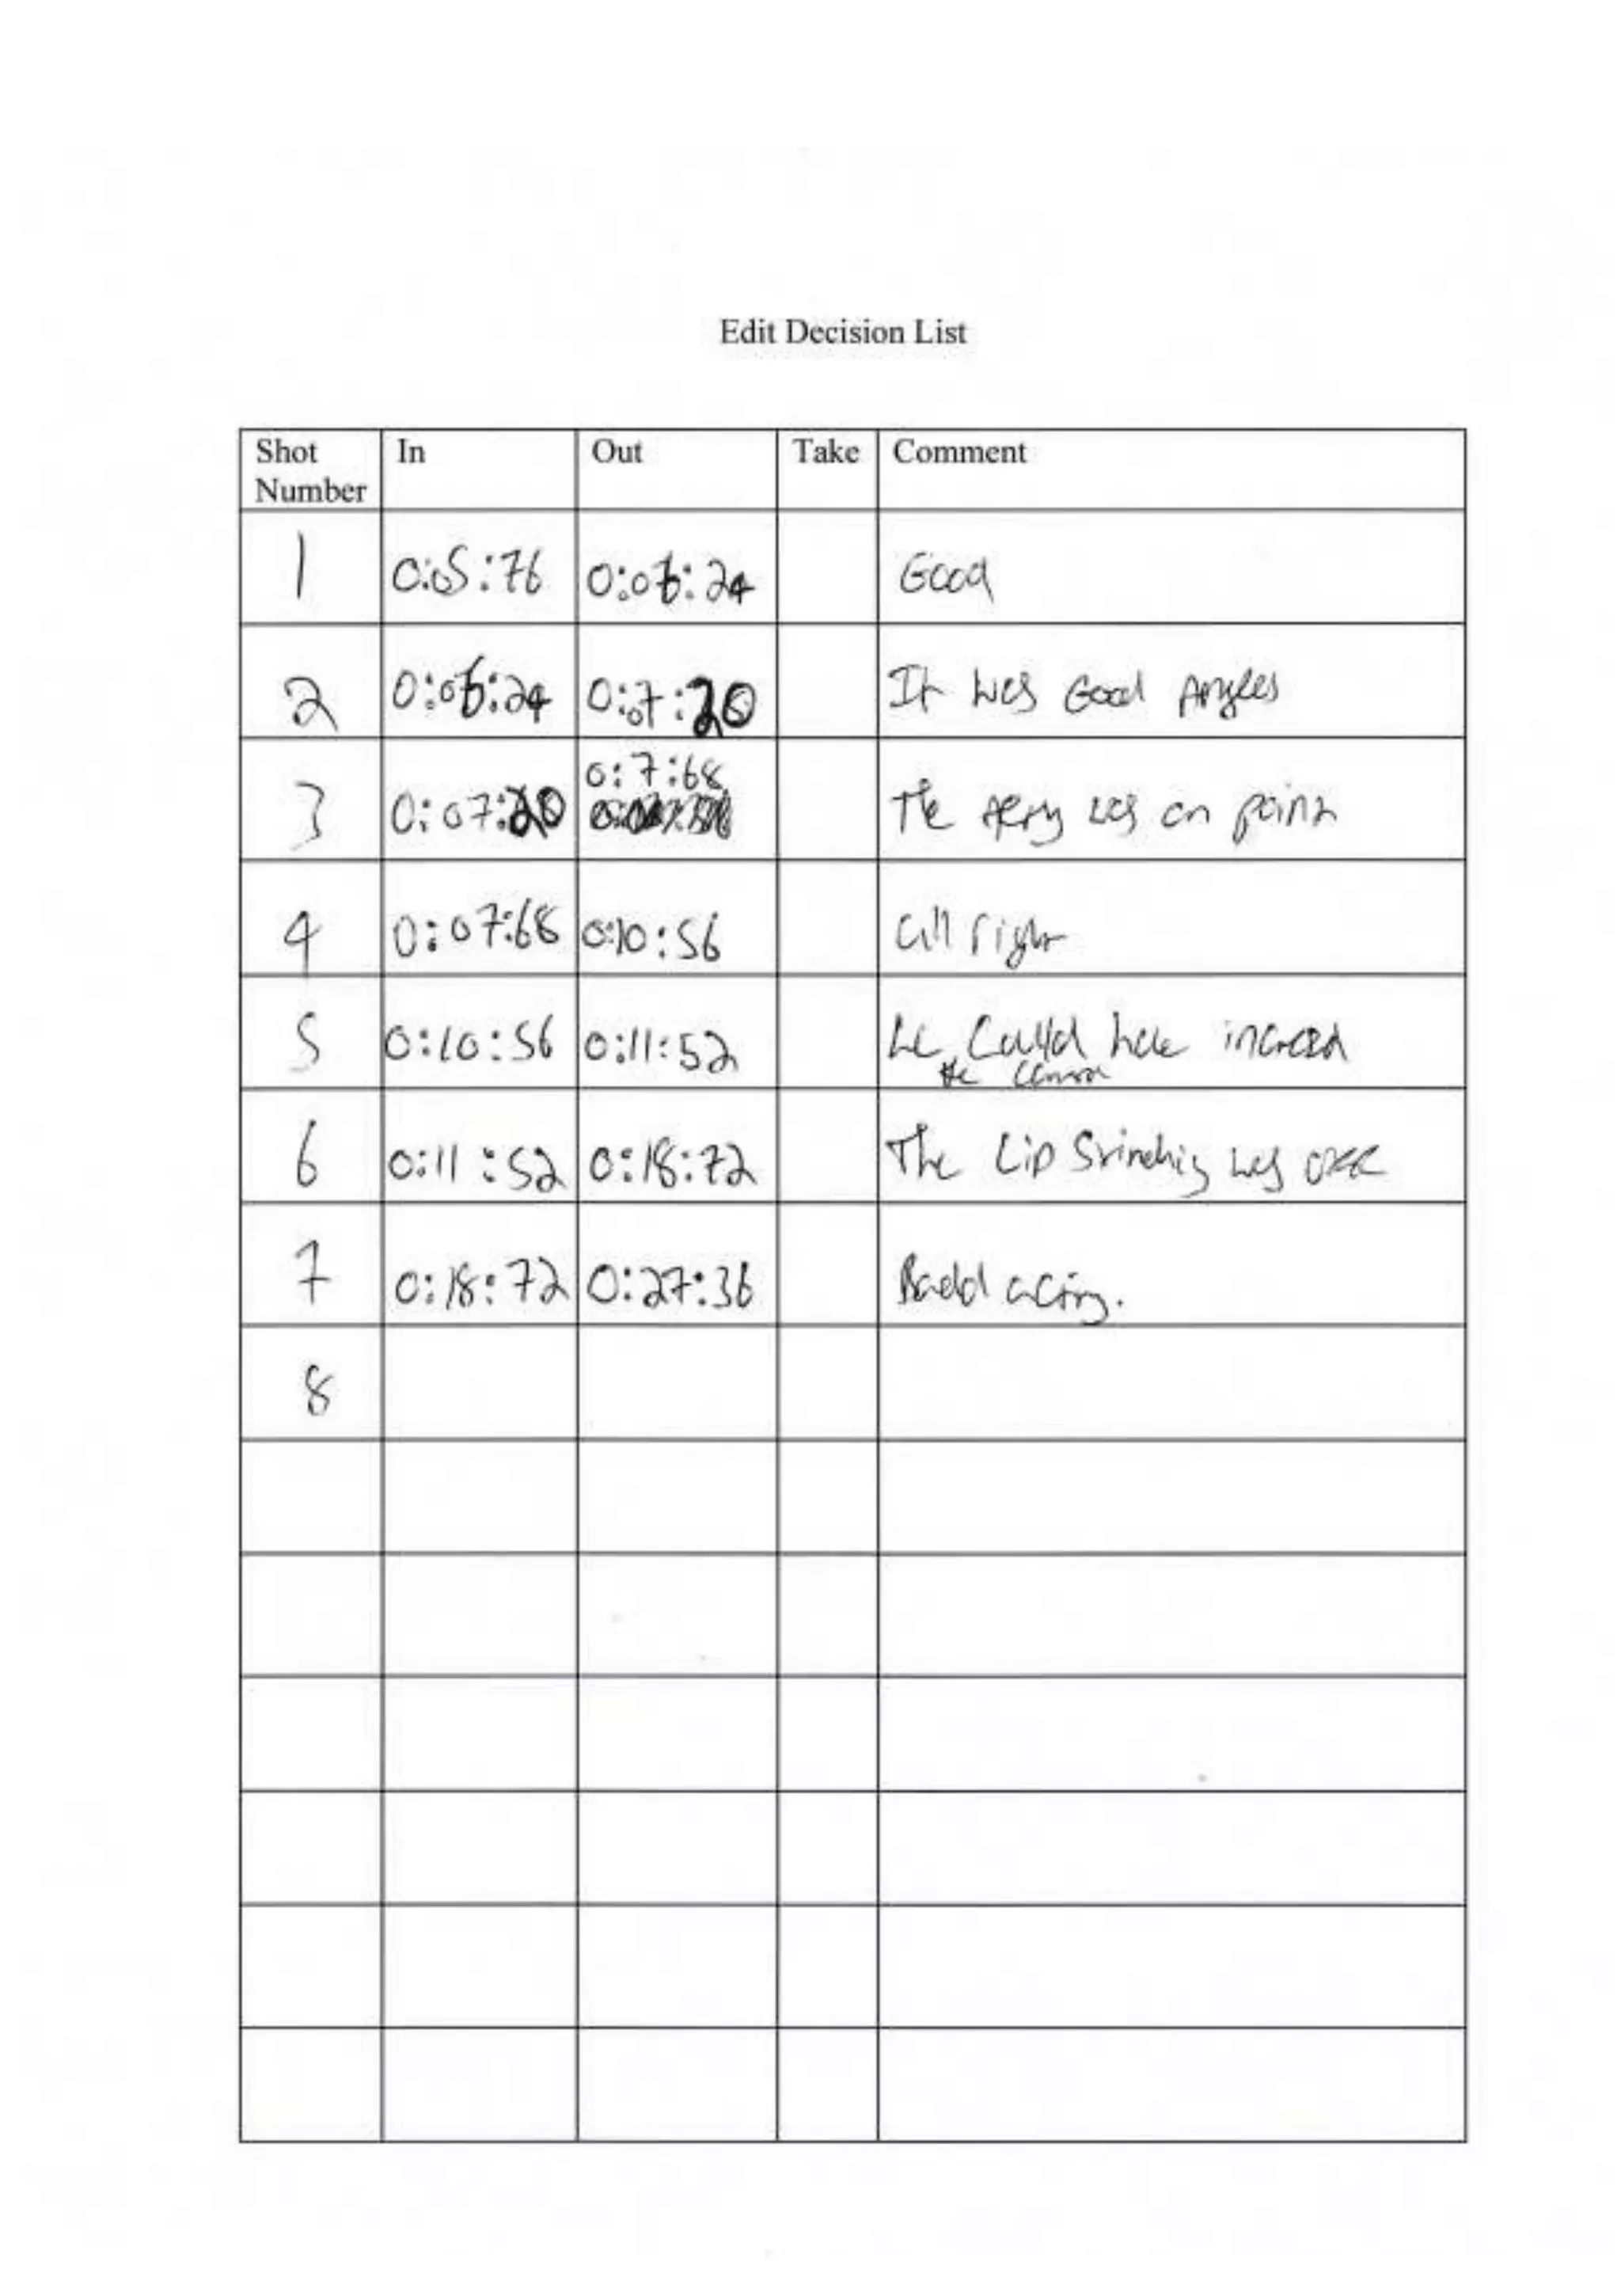 Edit Decision List
Shot Number In Out Take Comment
1 0:05:76 0:06:24 Good
2 0:06:24 0:07:20 It wes Good Angles
3 0:07:20 0:7:68 The wes on point
4 0:07:68 0:10:56 all right
5 0:10:56 0:11:52 Could have
the
6 0:11:52 0:18:72 The Lip wes
7 0:18:72 0:27:36 Badd acting.
8